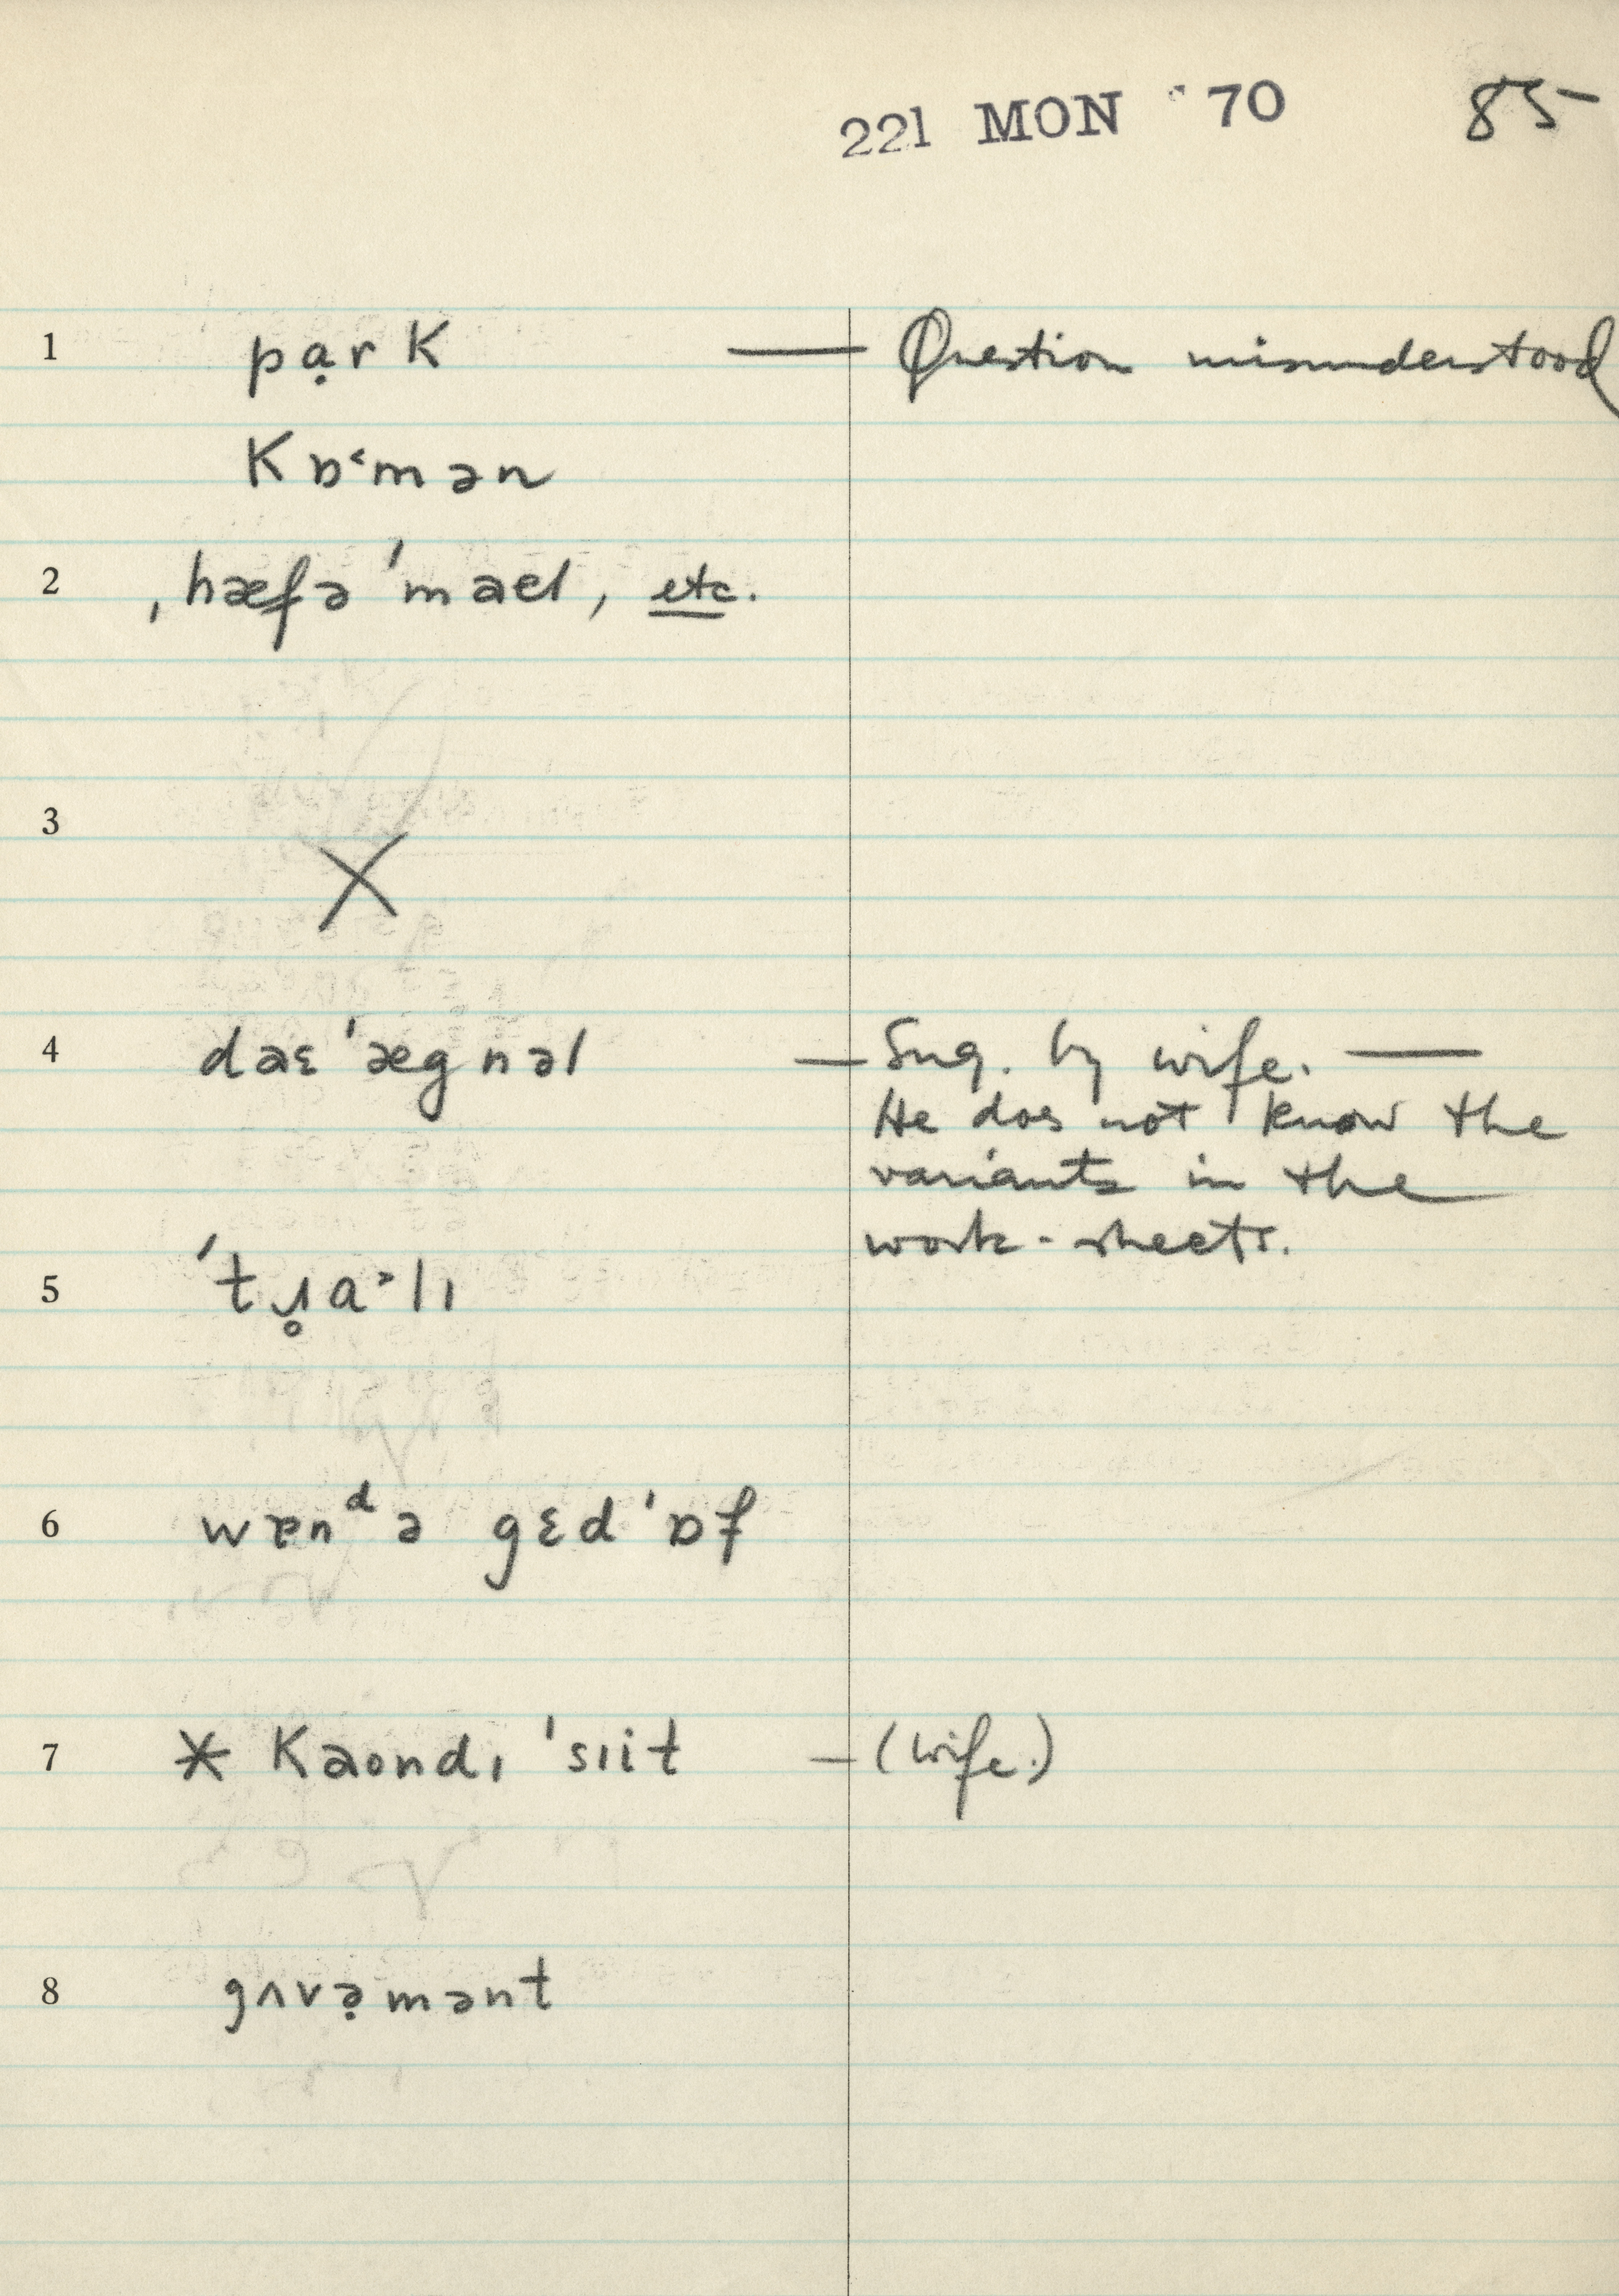 221 MON '70 85
1 pạrK — Question misunderstood
Kɒ˂mən
2 ˌhæfə ˈmael, etc.
3 X
4 daɛˈægnəl — Sug. by wife. —
He does not know the
variants in the
work-sheets.
5 ˈtɹ̥a˃lɪ
6 wɐnᵈə gɛdˈɒf
7 * Kaondɪ ˈsɪit — (wife.)
8 gʌvə̣mənt